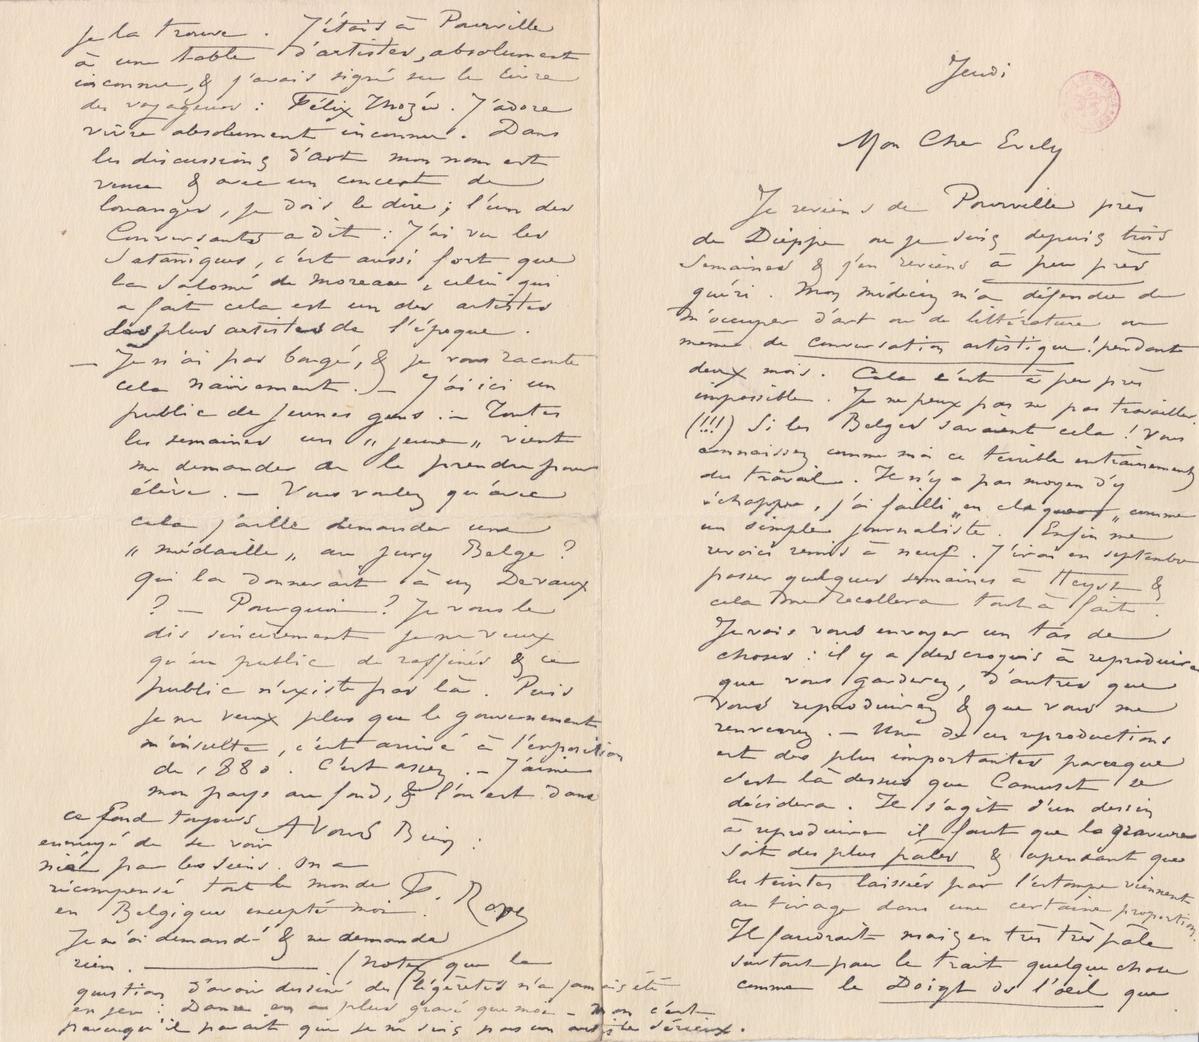 Jeudi
Mon Cher Evely
Je reviens de Pourville près
de Dieppe ou je suis depuis trois
semaines & j'en reviens à peu près
guéri. Mon médecin m'a défendu de
m'occuper d'art ou de littérature ou
même de conversation artistique! pendant
deux mois. Cela c'est à peu près
impossible. Je ne peux pas ne pas travailler.
(!!!) Si les Belges savaient cela! Vous
connaissez comme moi ce terrible entrainement
du travail. Il n'y a pas moyen d'y
échapper, j'ai failli „en claquer„ comme
un simple journaliste. Enfin me
revoici remis à neuf. J'irai en septembre
passer quelques semaines à Heyst &
cela me recollera tout à fait.
Je vais vous envoyer un tas de
choses: il y a des croquis à reproduire
que vous garderez, d'autres que
vous reproduirez & que vous me
renverrez. – Une de ces reproductions
est des plus importantes parceque
c'est là dessus que Camuset se
décidera. Il s'agit d'un dessin
à reproduire il faut que la gravure
soit des plus pâles & cependant que
les teintes laissées par l'estompe viennent
au tirage dans une certaine proportion.
Il faudrait mais en très très pâle
surtout pour le trait quelque chose
comme le Doigt dans l'œil que
je la trouve. J'étais à Pourville
à une table d'artistes, absolument
inconnu, & j'avais signé sur le livre
des voyageurs: Félix Thozée. J'adore
vivre absolument inconnu. Dans
les discussions d'art mon nom est
venu & avec un concert de
louanges, je dois le dire; l'un des
Conversants a dit: J'ai vu les
Sataniques, c'est aussi fort que
la Salomé de Moreau, celui qui
a fait cela est un des artistes
les plus artistes de l'époque.
— Je n'ai pas bougé, & je vous raconte
cela naïvement.) – J'ai ici un
public de jeunes gens. – Toutes
les semaines un „jeune„ vient
me demander de le prendre pour
élève. – Vous voulez qu'avec
cela j'aille demander une
„médaille„ au jury Belge?
qui la donnerait à un Devaux
? – Pourquoi? Je vous le
dis sincèrement je ne veux
qu'un public de raffinés & ce
public n'existe pas là. Puis
je ne veux plus que le gouvernement
m'insulte, c'est arrivé à l'exposition
de 1880. C'est assez. – J'aime
mon pays au fond, & l'on est dans
ce fond toujours
ennuyé de se voir
nié par les siens. On a
récompensé tout le monde
en Belgique excepté moi.
Je n'ai demandé & ne demande
rien.
A Vous Bien:
F. Rops
(Notez que la
question d'avoir dessiné des légèretés n'a jamais été
en jeu: Danse en a plus gravé que moi – non c'est
parcequ'il parait que je ne suis pas un artiste sérieux.